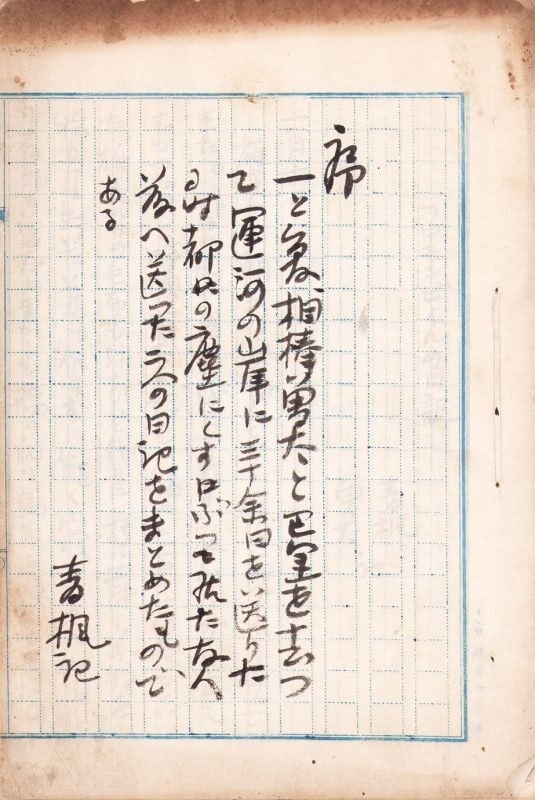 序
一と夏、相棒男大と巴里を去つ
て運河の山岸に三十余日を送りた
る時都の塵にくすぶつて居た友人
等へ送つた二人の日記をまとめたもので
ある
青楓記